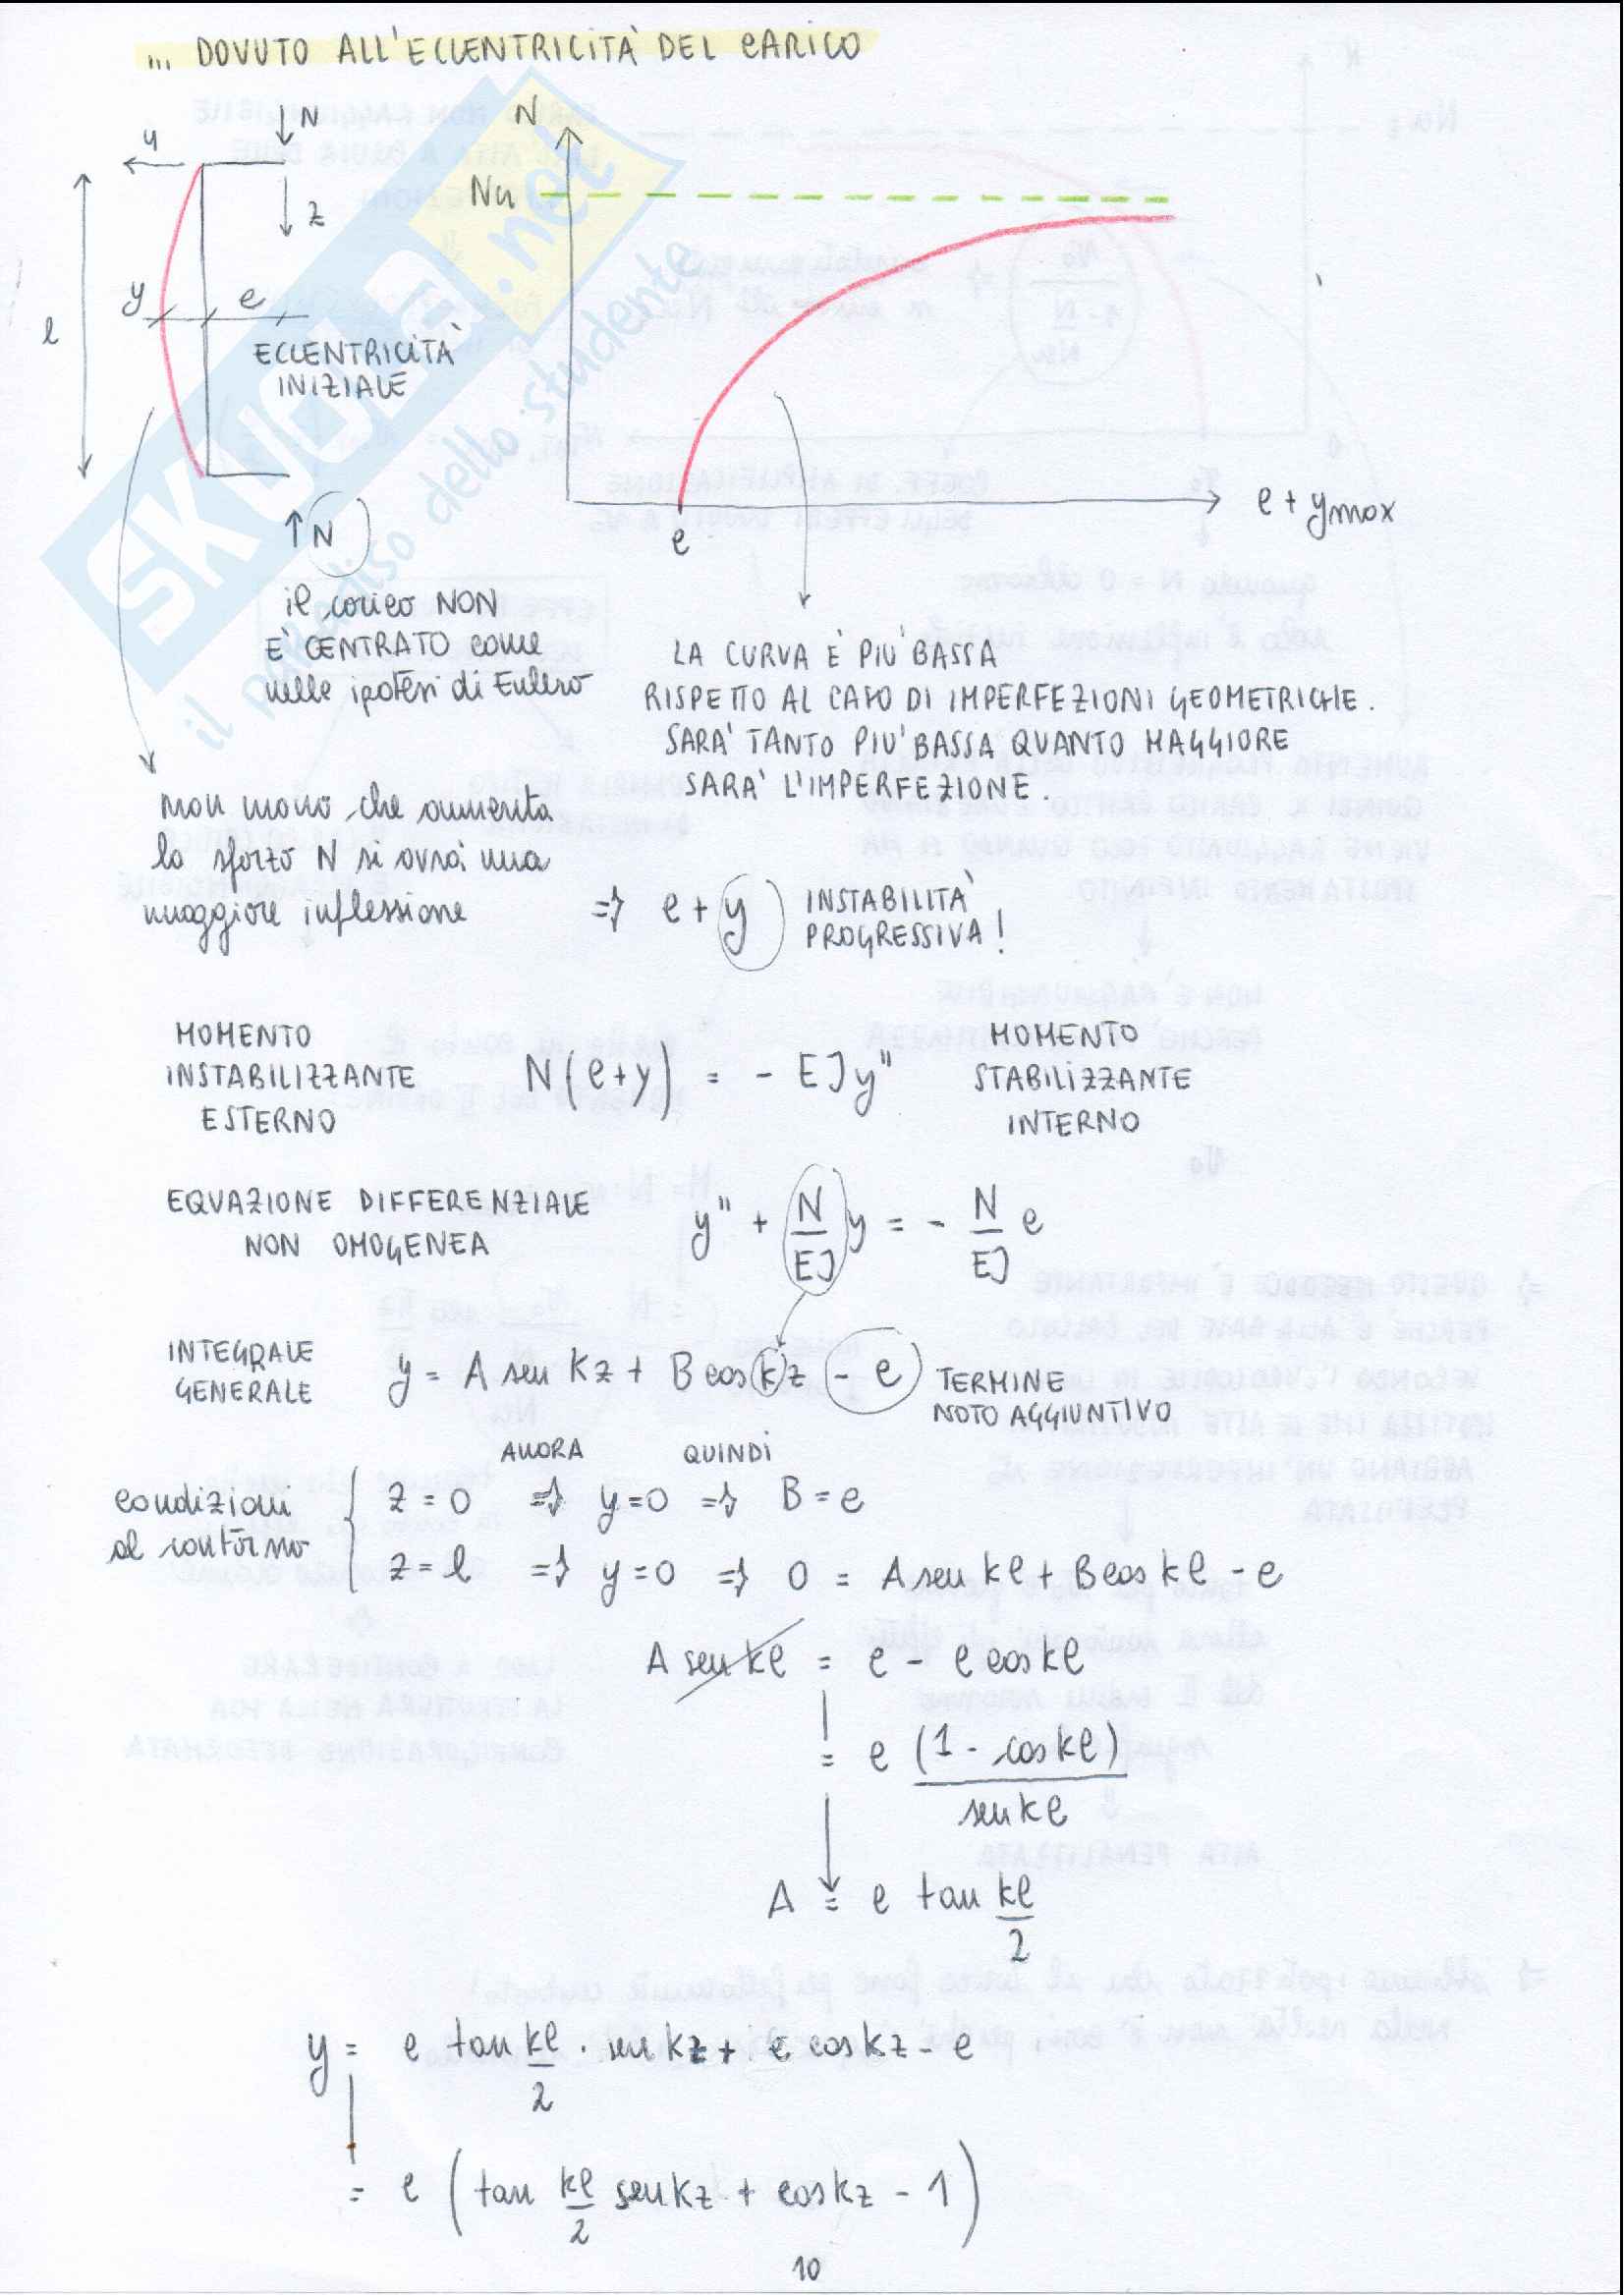 ... DOVUTO ALL'ECCENTRICITÀ DEL CARICO
N
y
z
l
y
e
ECCENTRICITÀ
INIZIALE
↑ N
il carico NON
E' CENTRATO come
nelle ipotesi di Eulero
N
Nu
e
e + ymax
LA CURVA È PIU' BASSA
RISPETTO AL CASO DI IMPERFEZIONI GEOMETRICHE.
SARA' TANTO PIU' BASSA QUANTO MAGGIORE
SARA' L'IMPERFEZIONE.
man mano che aumenta
lo sforzo N si avrà una
maggiore inflessione
=> e + y
INSTABILITA'
PROGRESSIVA!
MOMENTO
INSTABILIZZANTE
ESTERNO
N(e+y) = - EJy"
MOMENTO
STABILIZZANTE
INTERNO
EQUAZIONE DIFFERENZIALE
NON OMOGENEA
y" + N/EJ y = - N/EJ e
INTEGRALE
GENERALE
y = A sen kz + B cos kz - e
TERMINE
NOTO AGGIUNTIVO
ALLORA QUINDI
condizioni
al contorno
z = 0 => y=0 => B = e
z = l => y=0 => 0 = A sen kl + B cos kl - e
A sen kl = e - e cos kl
= e (1 - cos kl)/sen kl
A = e tan kl/2
y = e tan kl/2 · sen kz + e cos kz - e
= e (tan kl/2 sen kz + cos kz - 1)
10
SKUOLA.net
il paradiso dello studente